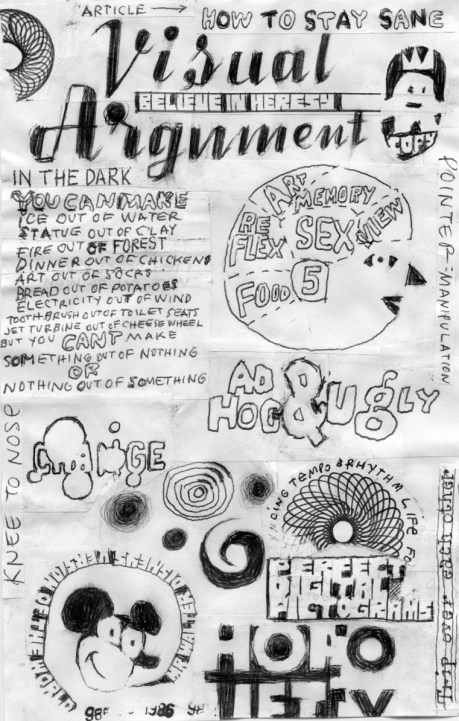 ARTICLE
HOW TO STAY SANE
Visual
BELIEVE IN HERESY
Argument
COPY
IN THE DARK
YOU CAN MAKE
ICE OUT OF WATER
STATUE OUT OF CLAY
FIRE OUT OF FOREST
DINNER OUT OF CHICKENS
ART OUT OF SOCKS
BREAD OUT OF POTATOES
ELECTRICITY OUT OF WIND
TOOTHBRUSH OUT OF TOILET SEATS
JET TURBINE OUT OF CHEESE WHEEL
BUT YOU CANT MAKE
SOMETHING OUT OF NOTHING
OR
NOTHING OUT OF SOMETHING
ART
MEMORY
REFLEX
SEX
VIEW
FOOD
5
POINTER: MANIPULATION
AD
HOC & UGLY
CHANGE
KNEE TO NOSE
TEMPO & RHYTHM LIFE
PERFECT
DIGITAL
PICTOGRAMS
Trip over each other
WORLD
1986